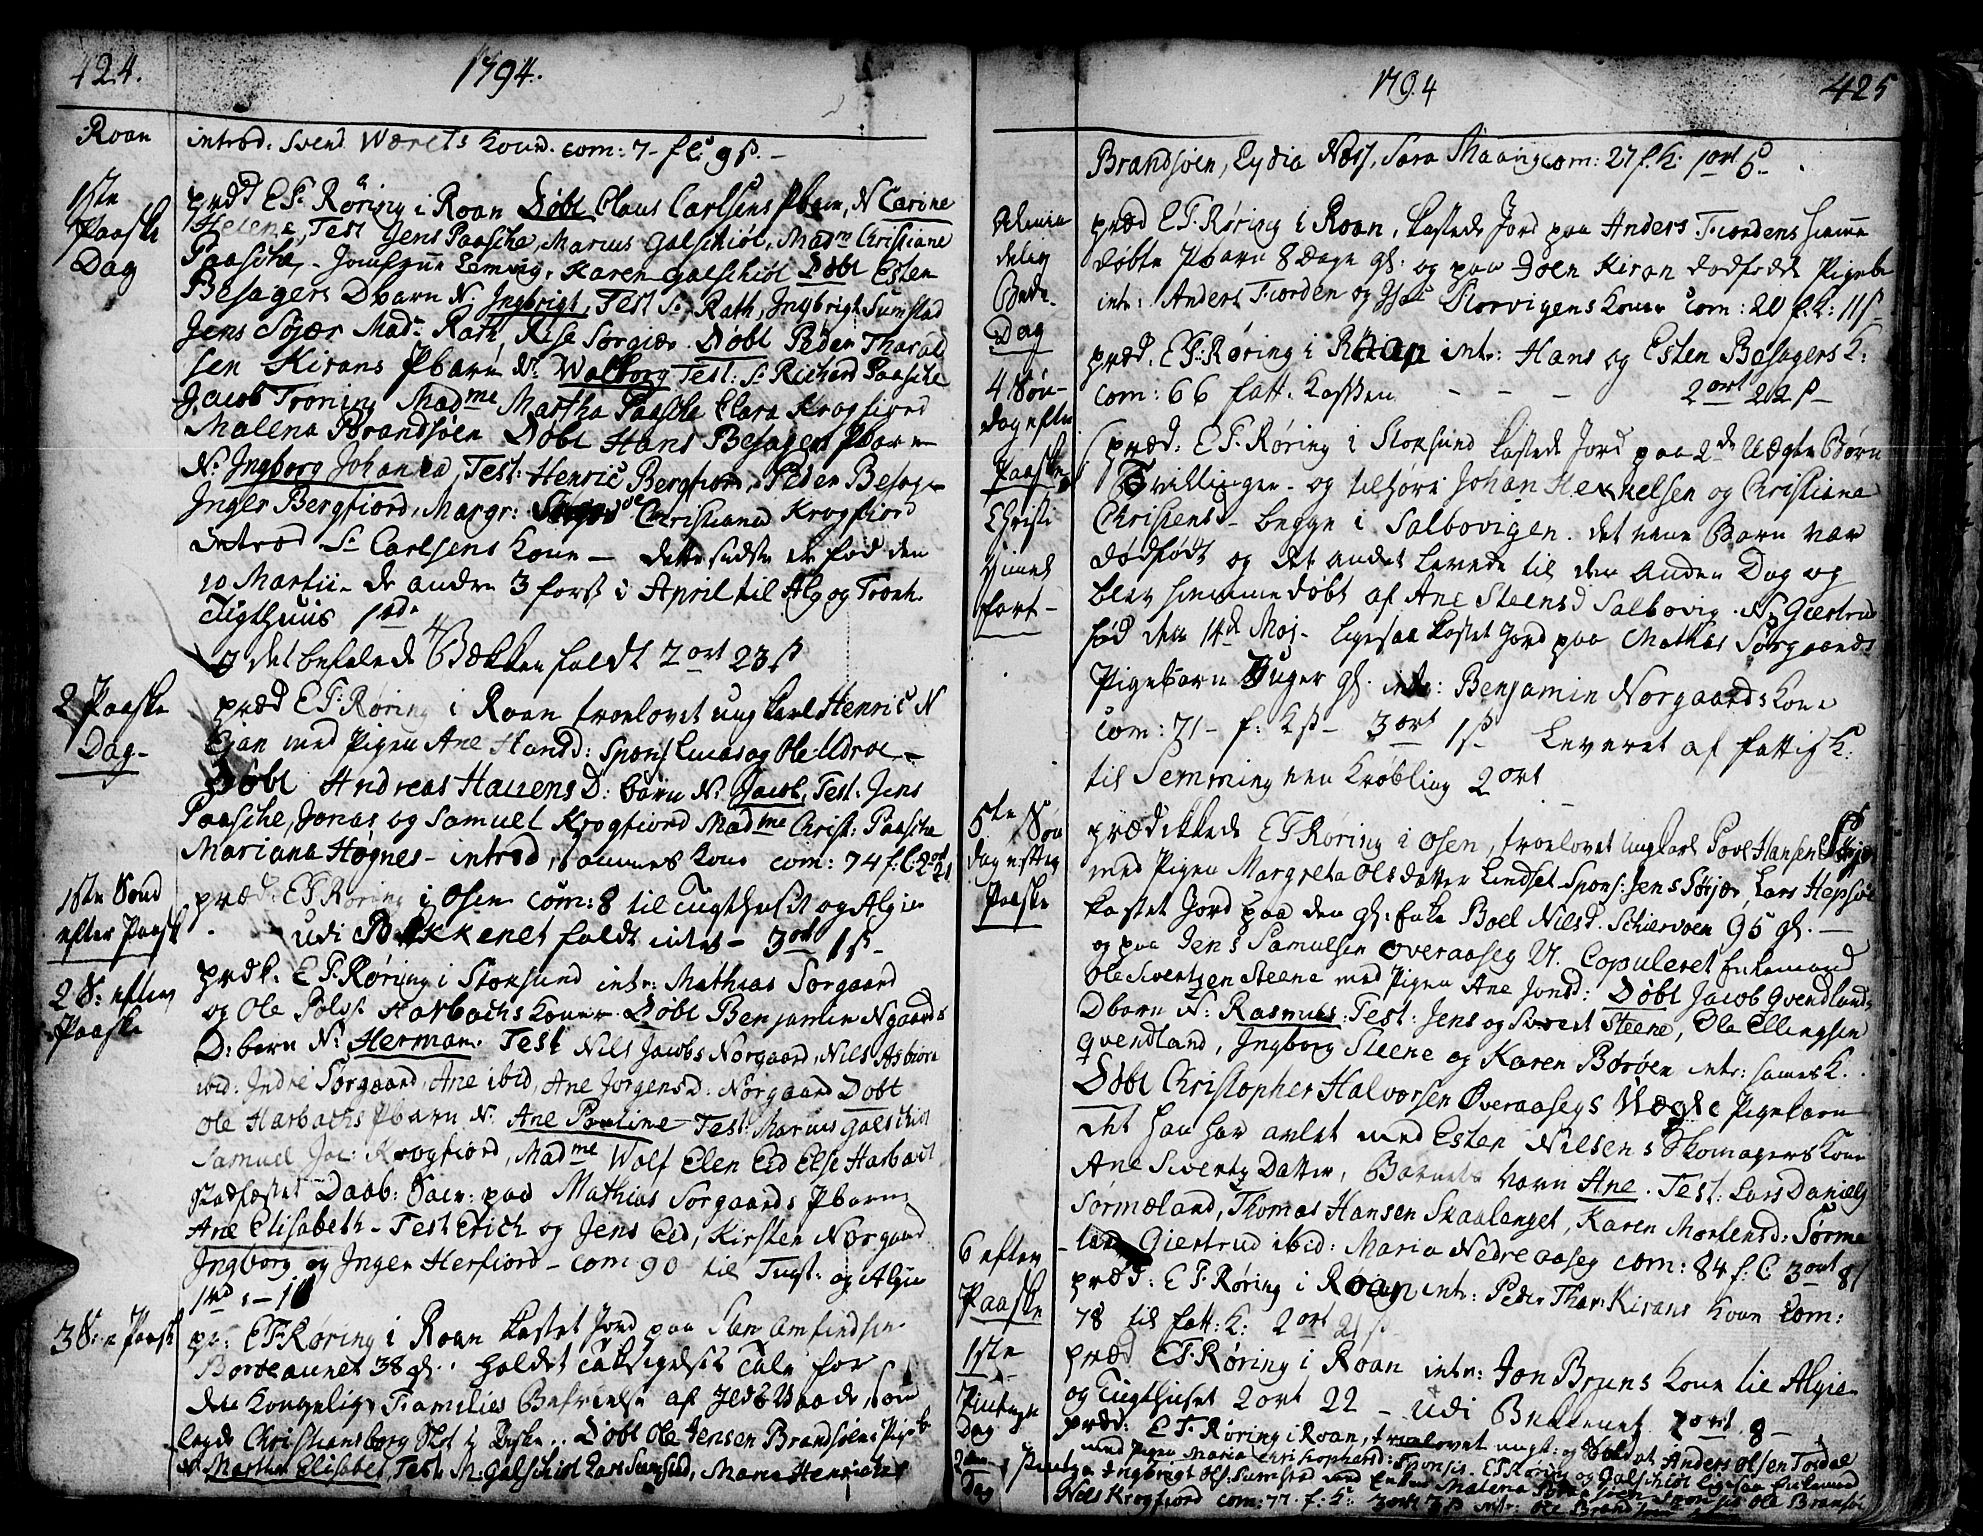 424.
1794.
Roan
introd: Svend Wærets Kone. com: 7- f C 9 s. -
1ste
Paaske
Dag
præd E F: Røring i Roan Døbt Claus Carlsens Pbarn, N Carine
Helene, Test Jens Paasche, Marius Galschiøt, Madm Christiane
Paasche, Jomfrue Lemvig, Karen Galschiøt Døbt Esten
Besagers Dbarn N. Ingbrigt, Test Sr Rath, Ingbrigt Sumstad
Jens Søjær Mad: Rath, Sørgiær. Døbt Peder Tharald
sen Kirans Pbarn N. Wolborg Test: Sr Richard Paasche
Jacob Troning Madme Martha Paasche Clara Krogfiord
Malena Brandsøen Døbt Hans Besagers Pbarn
N. Ingborg Johanna, Test: Henric Bergfiord, Peder Besag-
Inger Bergfiord, Margr: Christiana Krogfiord
Introd Sr Carlsens Kone - dette sidste er fød den
10 Martii - de andre 3 først i April til Alg og Tronh.
Tugthuus 1rd.
I det befalede Bækken faldt 2 ort 23 s
2 Paaske
Dag-
præd E F: Røring i Roan troelovet ung Karl Henric N
Eian med Pigen Ane Hansd: Spons Lucas og Ole Udroe -
Døbt Andreas Hauens D: barn N. Jacob, Test: Jens
Paasche, Jonas og Samuel Krogfiord Madme Christ: Paasche
Mariana Høgnes - introd, sammes Kone com: 74 f: C: 2 ort 21
1ste Sønd
efter Paask
præd: E F Røring i Osen com: 8 til Tugthuset og Algie
udi Bekkenet faldt intet - 3 ort 1 s -
2 S: efter
Paaske
præk. E F: Røring i Stoksund intr: Mathias Sørgaard
og Ole Pols: Harbachs Koner. Døbt Benjamin Ngaards
D: barn N: Herman. Test Nils Jacobs Norgaard, Nils Asbiørn
ibid: Indre Sørgaard, Ane ibid, Ane Jørgensd: Norgaard Døbt
Ole Harbachs Pbarn N. Ane Pauline Test: Marius Galschiøt
Samuel Jac: Krogfiord, Madme Wolf Elen Eid Else Harbach
stadfæstet Daab: Sacr: paa Mathias Sørgaards Pbarn
Ane Elisabeth - Test Erich og Jens Eid, Kirsten Norgaard
Ingborg og Inger Herfiord - com 90 til Tugt: og Algie
1rd: - 1
3 S: e Paask
pr: E F: Røring i Roan kastet Jord paa Sten Amfindsen
Bordeaunet 38 gl. holdet Taksigelses Tale for
den Kongelige Families Befrielse af Ilds Vaade, som
lagde Christiansborg Slot i Aske. Døbt Ole Jensen Brandsøens Pigeb
N. Martha Elisabet, Test: M: Galschiøt Lars Sumstad, Maren Henrichs
1794
425
Brandsøen, Lydia Næss, Sara Maaing com: 27 f. K: 1 ort 5
Almin
delig
Bede-
Dag
præd E F: Røring i Roan, kastede Jord paa Anders Fiordens hiemme
døbte Pbarn 8 Dage gl: og paa Joen Kiran dødfødt Pigebr
intr: Anders Fiorden og Storvigens Koner com: 20 f. K: 11 s-
4 Søn-
dag efter
Paaske
præd. E F: Røring i Roan intr: Hans og Esten Besagers K:
com: 66 fatt. Kassen - - - 2 ort 22 s -
Christi
himel
fart-
præd: E F. Røring i Stoksund kastede Jord paa 2de Uægte Børn
Tvillinger - og tilhører Johan Hennelsen og Christiana
Christensd - begge i Salbovigen. det eene Barn var
dødfødt og det andet levede til den anden Dag og
blev hiemmedøbt af Ane Steensd Salbovig. N. Giertrud
fød den 14de Maj - ligesaa kastet Jord paa Mathias Sørgaards
Pigebarn Uger gl. intr: Benjamin Norgaards Kone
com: 71 - f: K s - 3 ort 1 s - Leveret af fattig K.
til Semming en Krøbling 2 ort
5te Søn
dag efter
Paaske
prædikkede E F Røring i Osen, troelovet ungkarl Povel Hansen
med Pigen Margreta Olsdatter Lindset Spons: Jens Søtjær, Lars Hepsøe
kastet Jord paa den gl: Enke Boel Nilsd. Schiervøen 95 gl. -
og paa Jens Samuelsen Overaaseg 21. Copuleret Enkemand
Ole Sivertzen Steene med Pigen Ane Jonsd: Døbt Jacob Qvendlands
Dbarn N: Rasmus. Test: Jens og Sivert Steene, Ole Ellingsen
Qvendland, Ingborg Steene og Karen Børøen intr: sames K.
Døbt Christopher Halvorsen Øveraasegs Uægte Pigebarn
det han har avlet med Esten Nilsens Skomagers Kone
Ane Sivertz Datter, Barnets Navn Ane. Test: Lars Daniels
Sørmæland, Thomas Hansen Skaalanget, Karen Mortensd: Sørme
land Giertrud ibid: Maria Nedreaaseg com: 84 f: C: 3 ort 8 s
6 efter
Paaske
præd: E F: Røring i Roan intr: Peder Thar: Kirans Kone com:
78 til fatt: K: 2 ort 21 s -
1ste
Pintse
Dag
præd E F: Røring i Roan intr: Jon Bruns Kone til Algie
og Tugthuset 2 ort 22 - udi Bekkenet 2 ort 8 -
2den Pintse
Dag
præd: E F: Røring i Roan, troelovet ungk: og Soldat Anders Olsen Tosdal
med Pigen Maria Christophersd: Sponsis. E F Røring og Galschiøt ligesaa Enkemand
Ingbrigt Ols: Sumstad med Enken Malena Sponsis Ole Brandsøe
Nils Krogfiord com: 77. f: K: 3 ort 7 s intr: Ole Brandsøes Kone